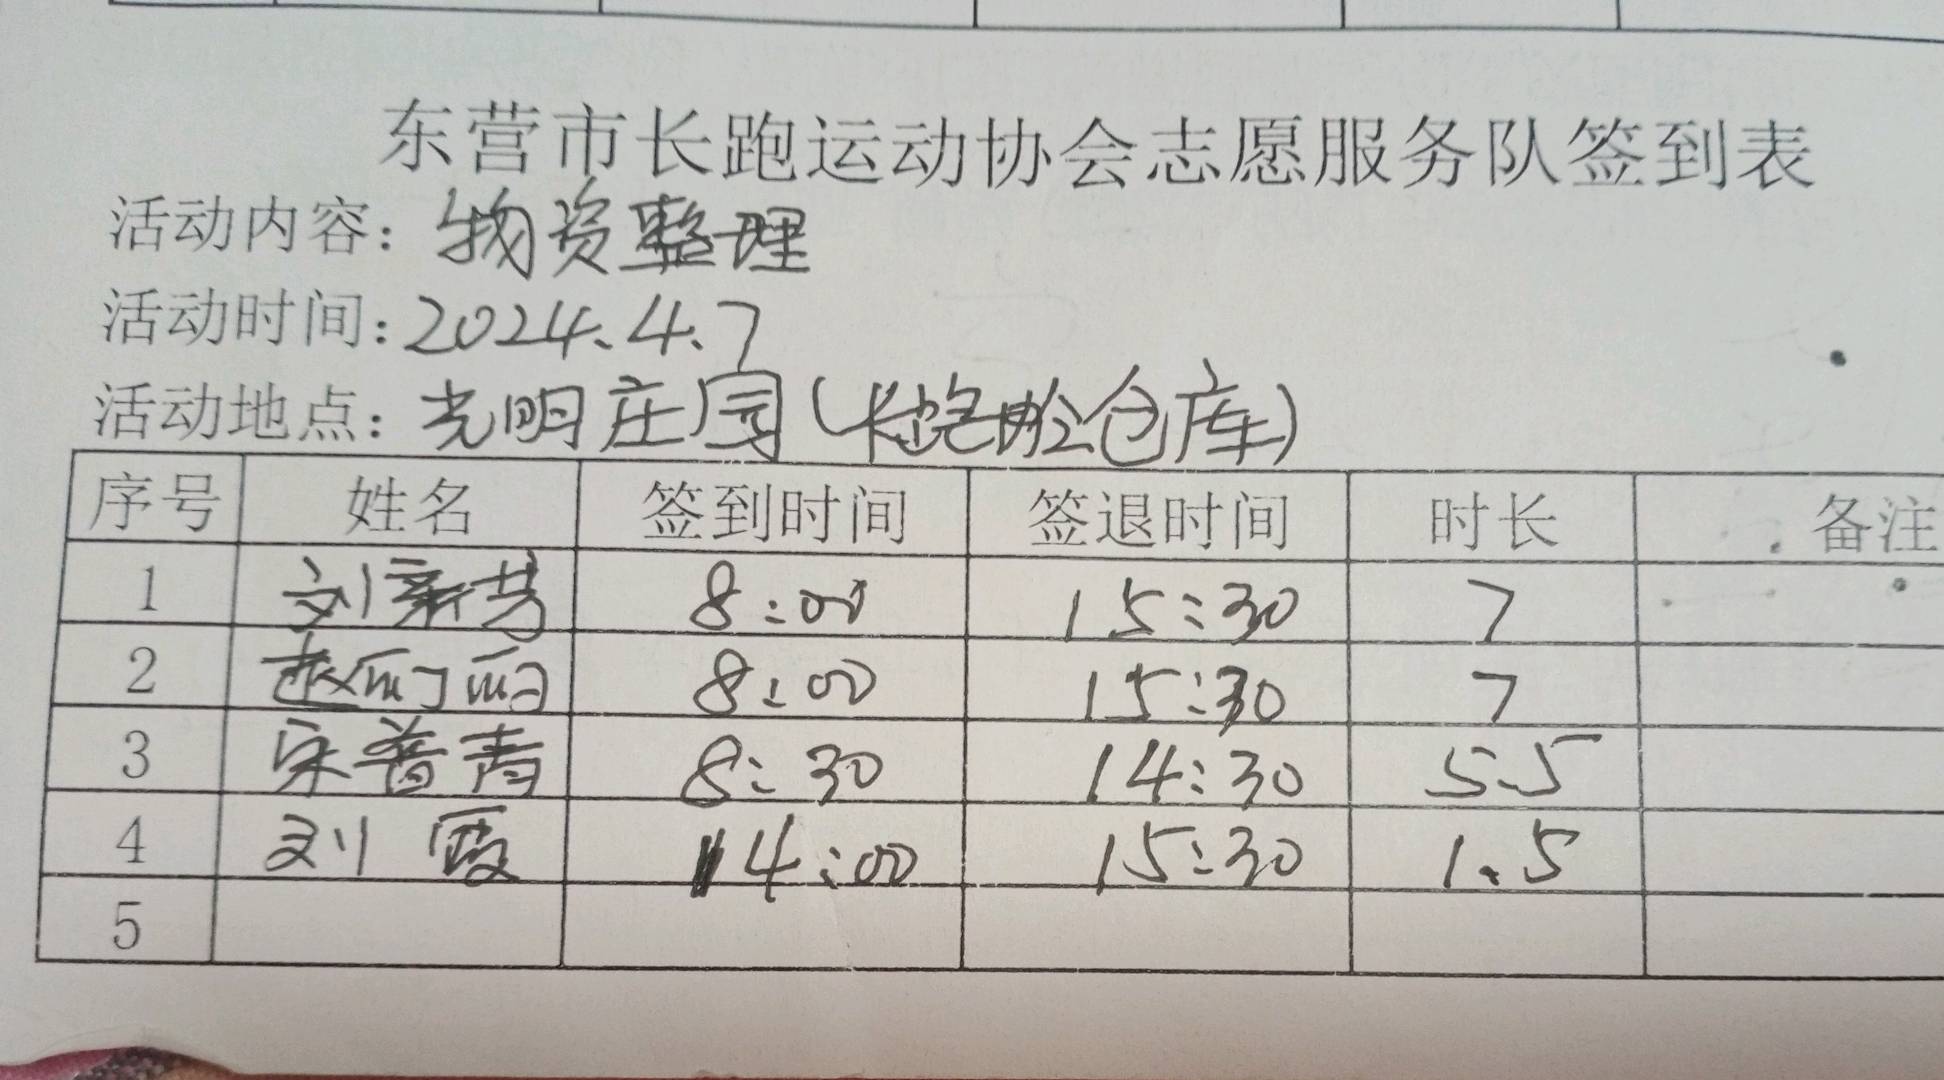 东营市长跑运动协会志愿服务队签到表
活动内容：物资整理
活动时间：2024.4.7
活动地点：光明庄园（长跑协会仓库）
序号 姓名 签到时间 签退时间 时长 备注
1 刘新芳 8:00 15:30 7
2 赵丽丽 8:00 15:30 7
3 宋普青 8:30 14:30 5.5
4 刘霞 14:00 15:30 1.5
5